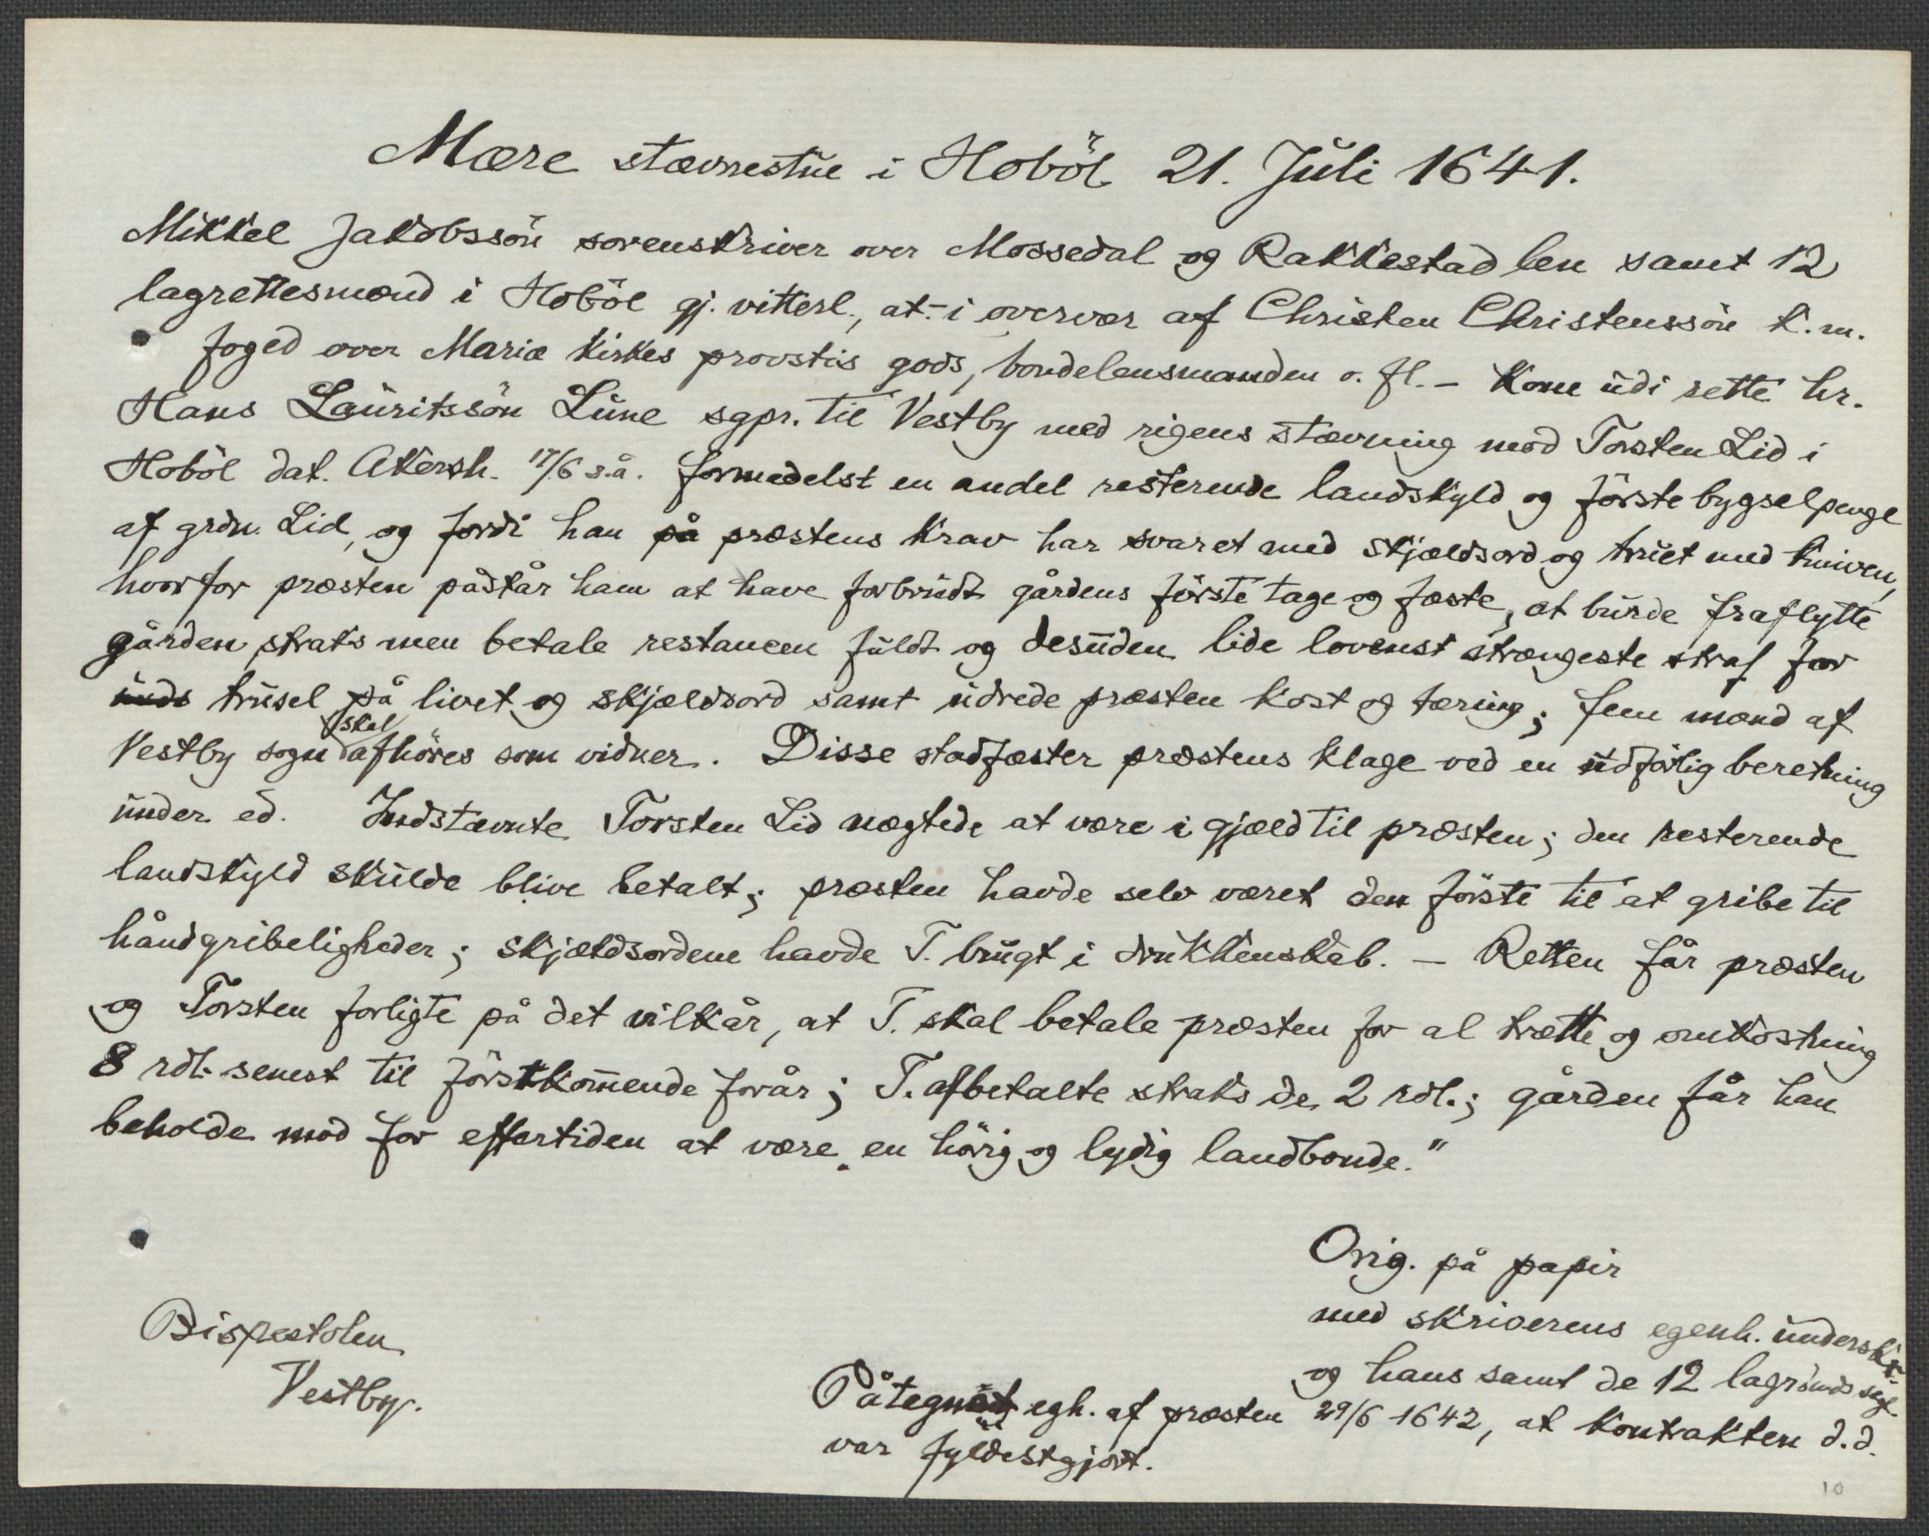 Mære stævnestue i Hoböl 21. Juli 1641.
Mikkel Jakobssön sorenskriver over Mossedal og Rakkestad len samt 12
lagrettesmænd i Hoböl gj. vitterl., at - i overvær af Christen Christenssön k. m.
foged over Mariæ kirkes provstis gods, bondelensmanden o. fl. - kom udi rette hr.
Hans Lauritssön Lune sgpr. til Vestby med rigens stævning mod Torsten Lid i
Hoböl dat. Akersh. 17/6 s.å. formedelst en andel resterende landskyld og förstebygselpenge
af grdn. Lid, og fordi han på præstens krav har svaret med skjældsord og truet med kniven,
hvorfor præsten påstår ham at have forbrudt gårdens förste tage og fæste, at burde fraflytte
gården straks men betale restancen fuldt og desuden lide lovens strængeste straf for
unds trusel på livet og skjældsord samt udrede præsten kost og tæring; fem mænd af
Vestby sogn skal afhöres som vidner. Disse stadfæster præstens klage ved en udförlig beretning
under ed. Indstævnte Torsten Lid nægtede at være i gjæld til præsten; den resterende
landskyld skulde blive betalt; præsten havde selv været den förste til at gribe til
håndgribeligheder; skjældsordene havde T. brugt i drukkenskab. - Retten får præsten
og Torsten forligte på det vilkår, at T. skal betale præsten for al trætte og omkostning
8 rdl. senest til förstkommende forår; T. afbetalte straks de 2 rdl.; gården får han
beholde mod for eftertiden at være „en hörig og lydig landbonde."
Orig. på papir
med skriverens egenh. underskr.
og hans samt de 12 lagr.mds segl
Bispestolen
Vestby.
Påtegnet egh. af præsten 29/6 1642, at kontrakten d.d.
var fyldestgjort.
10